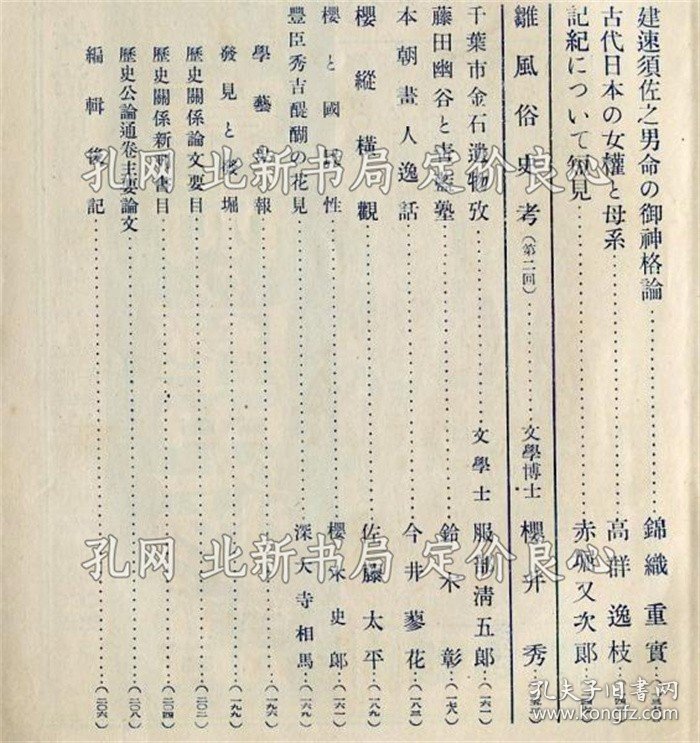 建速須佐之男命の御神格論……錦織重實
古代日本の女權と母系……高群逸枝
記紀について短見……赤堀又次郎
雛風俗史考(第二回)……文學博士 櫻井秀
千葉市金石遺物攷……文學士 服部淸五郎(一六一)
藤田幽谷と靑藍塾……鈴木彰(一七八)
本朝畫人逸話……今井蓼花(一八三)
櫻縱橫觀……佐藤太平(一八九)
櫻と國民性……櫻木史郎(一六一)
豐臣秀吉醍醐の花見……深大寺相馬(一六九)
學藝彙報……(一九六)
發見と發堀……(一九九)
歷史關係論文要目……(二〇二)
歷史關係新刊書目……(二〇四)
歷史公論通卷主要論文……(二〇八)
編輯後記……(二〇六)
孔网 北新书局 定价良心
孔网 北新书局 定价良心
孔夫子旧书网
www.kongfz.com